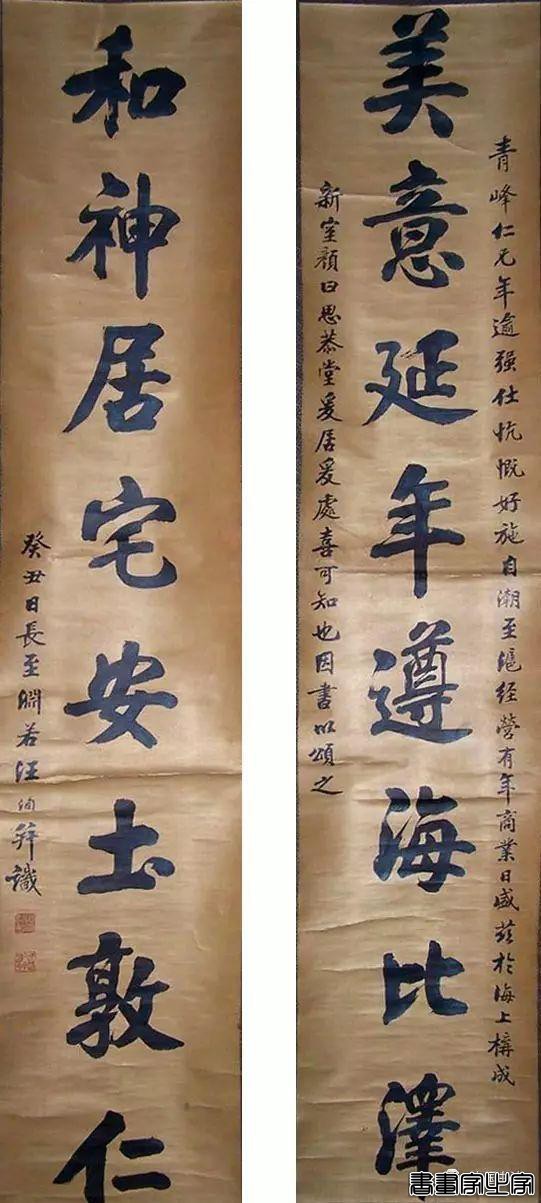 青峰仁兄年逾强仕忼慨好施自潮至滬经營有年商業日盛兹於海上構成
美意延年遵海比澤
新室顏曰思恭堂爰居爰處喜可知也因書以頌之
和神居宅安土敦仁
癸丑日長至淵若汪洵并識
書畫家必家